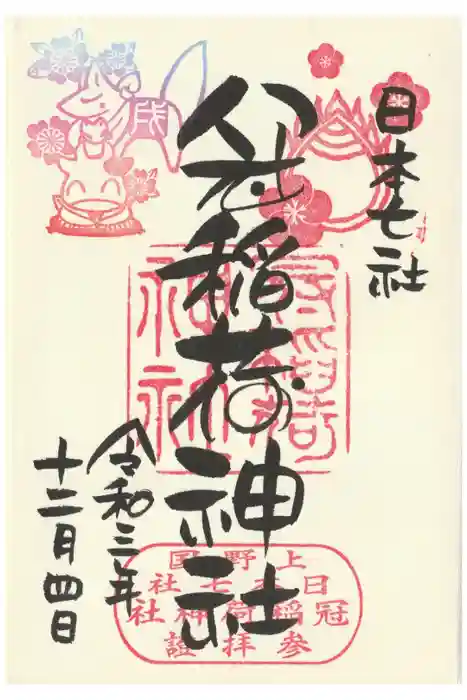 日本七社
八社稲荷神社
令和三年
十二月四日
上野国
日本七社
冠稲荷神社
参拝證